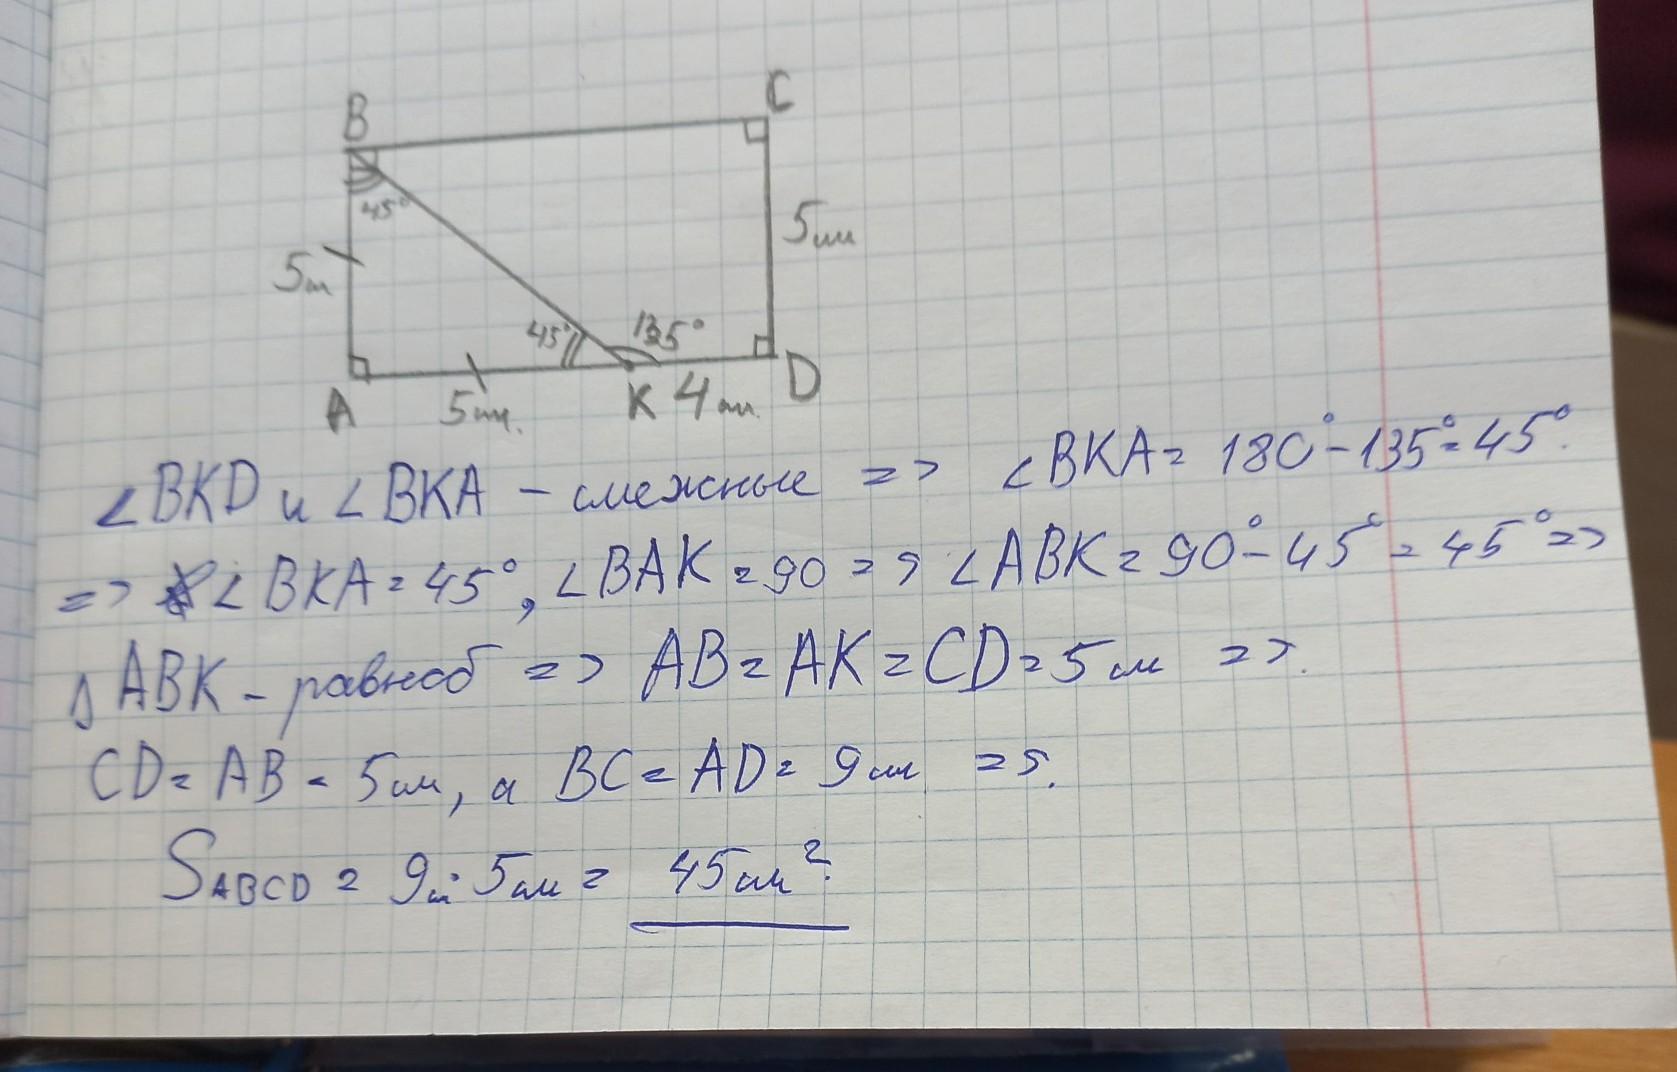 B
C
45°
5м
5см
45°
135°
A
5см.
K
4см.
D
∠BKD и ∠BKA - смежные => ∠BKA = 180° - 135° = 45°.
=> ∠BKA = 45°, ∠BAK = 90 => ∠ABK = 90° - 45° = 45° =>
△ABK - равноб => AB = AK = CD = 5см =>.
CD = AB = 5см, а BC = AD = 9см =>.
SABCD = 9см · 5см = 45см².